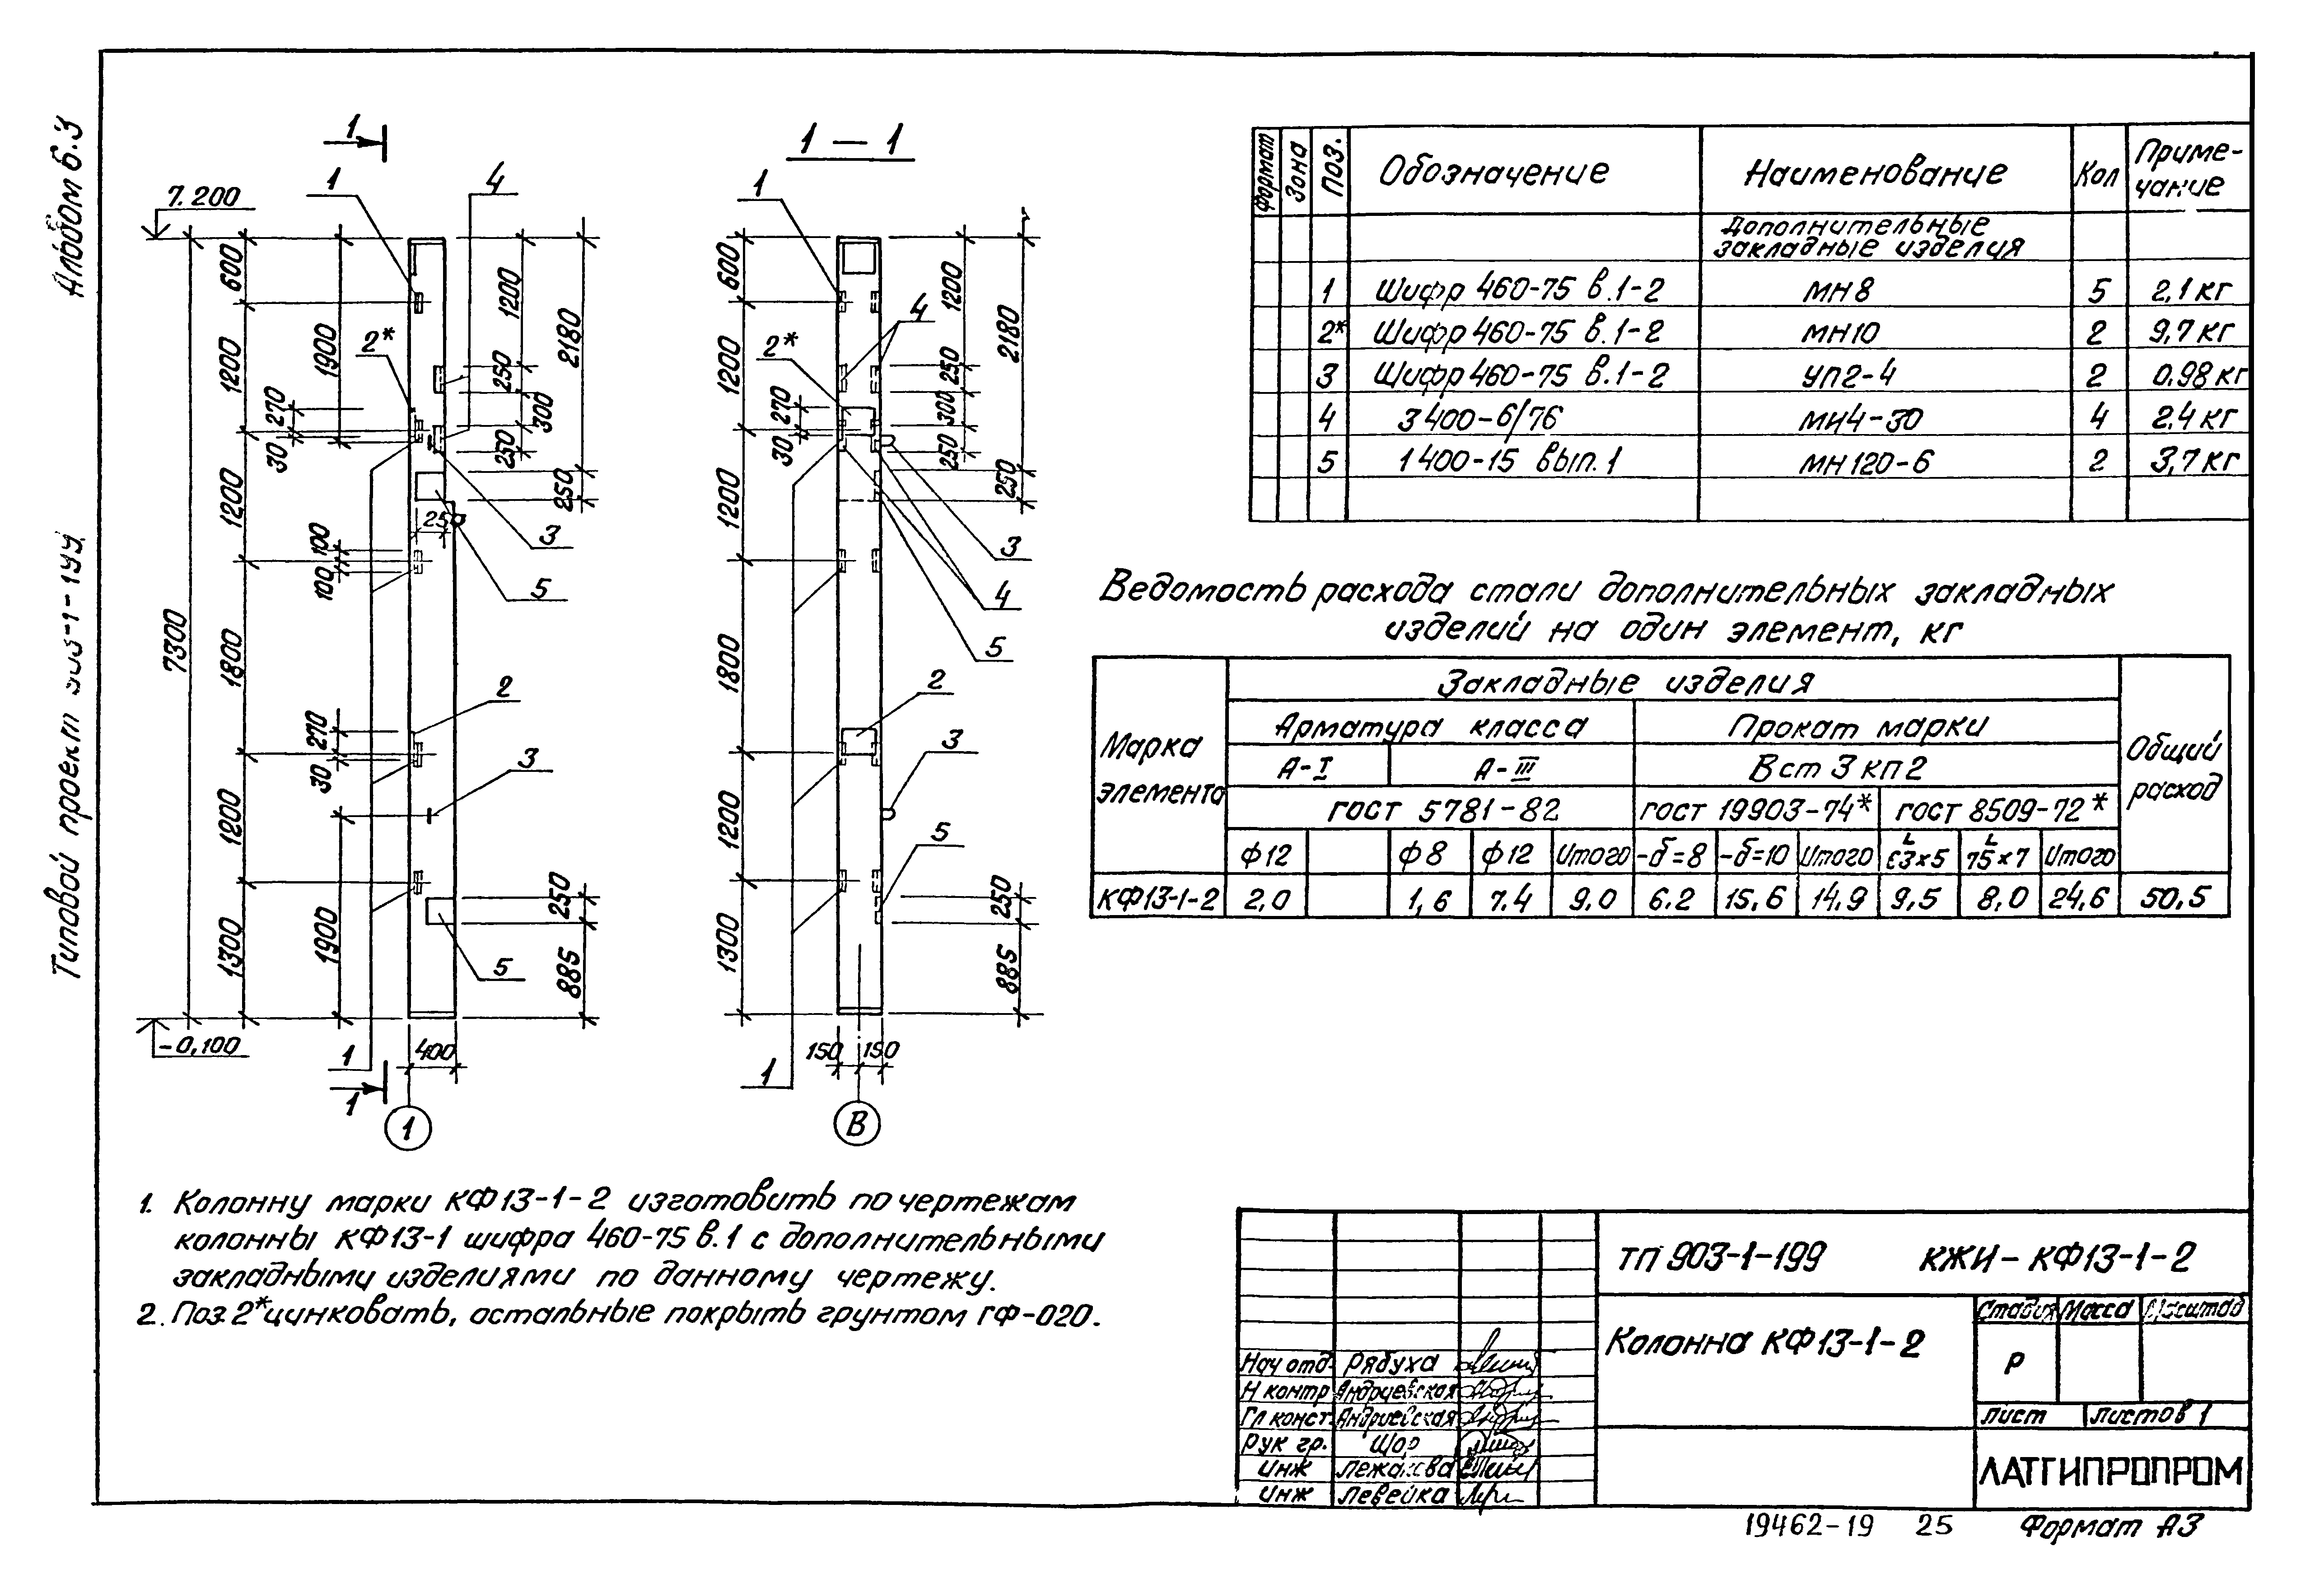 Альбом 6.3
Типовой проект
1
1 — 1
7.200
-0,100
1
4
2*
3
5
2
3
5
1
1
7300
600
1200
1200
1800
1200
1300
1900
270
30
100
100
270
30
1900
1200
250
300
250
2180
250
250
250
885
400
1
1
4
2*
3
4
5
2
3
5
1
600
1200
1200
1800
1200
1300
270
30
1200
250
300
250
2180
250
250
885
150 150
В
Формат Зона Поз. Обозначение Наименование Кол Приме-
чание
Дополнительные
закладные изделия
1 Шифр 460-75 в.1-2 МН8 5 2,1 кг
2* Шифр 460-75 в.1-2 МН10 2 9,7 кг
3 Шифр 460-75 в.1-2 УП2-4 2 0.98 кг
4 3 400-6/76 МИ4-30 4 2.4 кг
5 1 400-15 вып. 1 МН120-6 2 3,7 кг
Ведомость расхода стали дополнительных закладных
изделий на один элемент, кг
Марка элемента
Закладные изделия
Общий расход
Арматура класса Прокат марки
А-I А-III В ст 3 кп 2
ГОСТ 5781-82 ГОСТ 19903-74* ГОСТ 8509-72*
ф12 ф8 ф12 Итого -δ=8 -δ=10 Итого L 63×5 L 75×7 Итого
КФ13-1-2 2,0 1,6 7.4 9,0 6.2 15,6 14,9 9,5 8,0 24,6 50,5
1. Колонну марки КФ13-1-2 изготовить по чертежам
колонны КФ13-1 шифра 460-75 в.1 с дополнительными
закладными изделиями по данному чертежу.
2. Поз. 2* цинковать, остальные покрыть грунтом ГФ-020.
ТП 903-1-199 КЖИ-КФ13-1-2
Колонна КФ13-1-2
Стадия Масса Масштаб
Р
Лист Листов 1
ЛАТГИПРОПРОМ
Нач отд. Рябуха
Н контр Андриевская
Гл конст. Андриевская
Рук гр. Щор
Инж Лежакова
Инж Левейка
19462-19 25 Формат А3